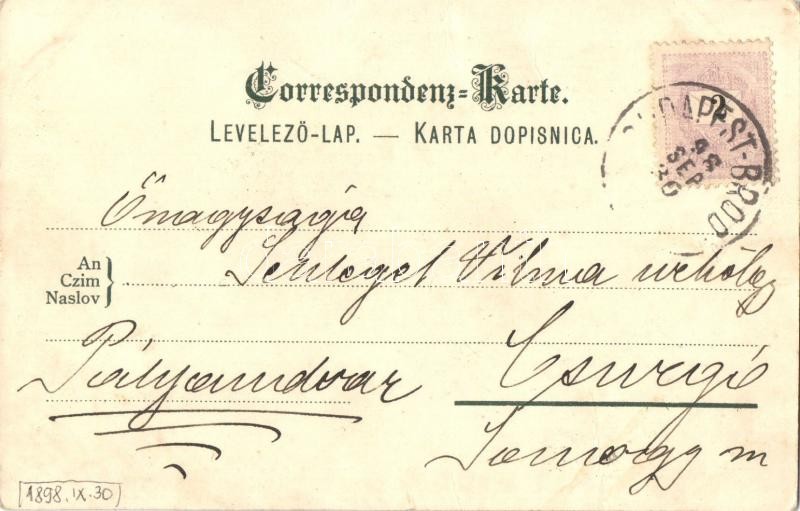 Correspondenz=Karte.
LEVELEZŐ-LAP. — KARTA DOPISNICA.
2
BUDAPEST-BROD
SEP
Őnagysága
An
Czim
Naslov
Schlegel Vilma úrhölgy
Pályaudvar
Csurgó
Somogy m
1898.IX.30